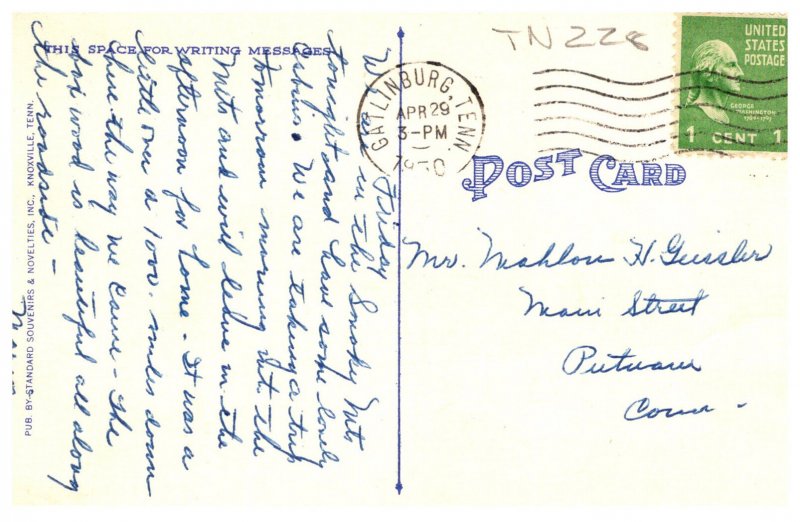 THIS SPACE FOR WRITING MESSAGES
Friday
We are in the Smoky Mts
tonight and have some lovely
cabins. We are taking a trip
tomorrow morning up the
Mts and will leave in the
afternoon for home. It was a
little over a 1000 miles down
here the way we came - The
dogwood is beautiful all along
the roadside -
PUB. BY STANDARD SOUVENIRS & NOVELTIES, INC., KNOXVILLE, TENN.
TN 228
GATLINBURG, TENN
APR 29
3-PM
1950
UNITED
STATES
POSTAGE
GEORGE
WASHINGTON
1789-1797
1 CENT 1
POST CARD
Mr. Mahlon H. Geissler
Main Street
Putnam
Conn -